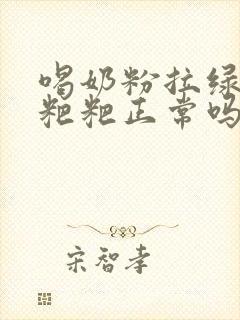 喝奶粉拉绿
粑粑正常吗
宋智孝